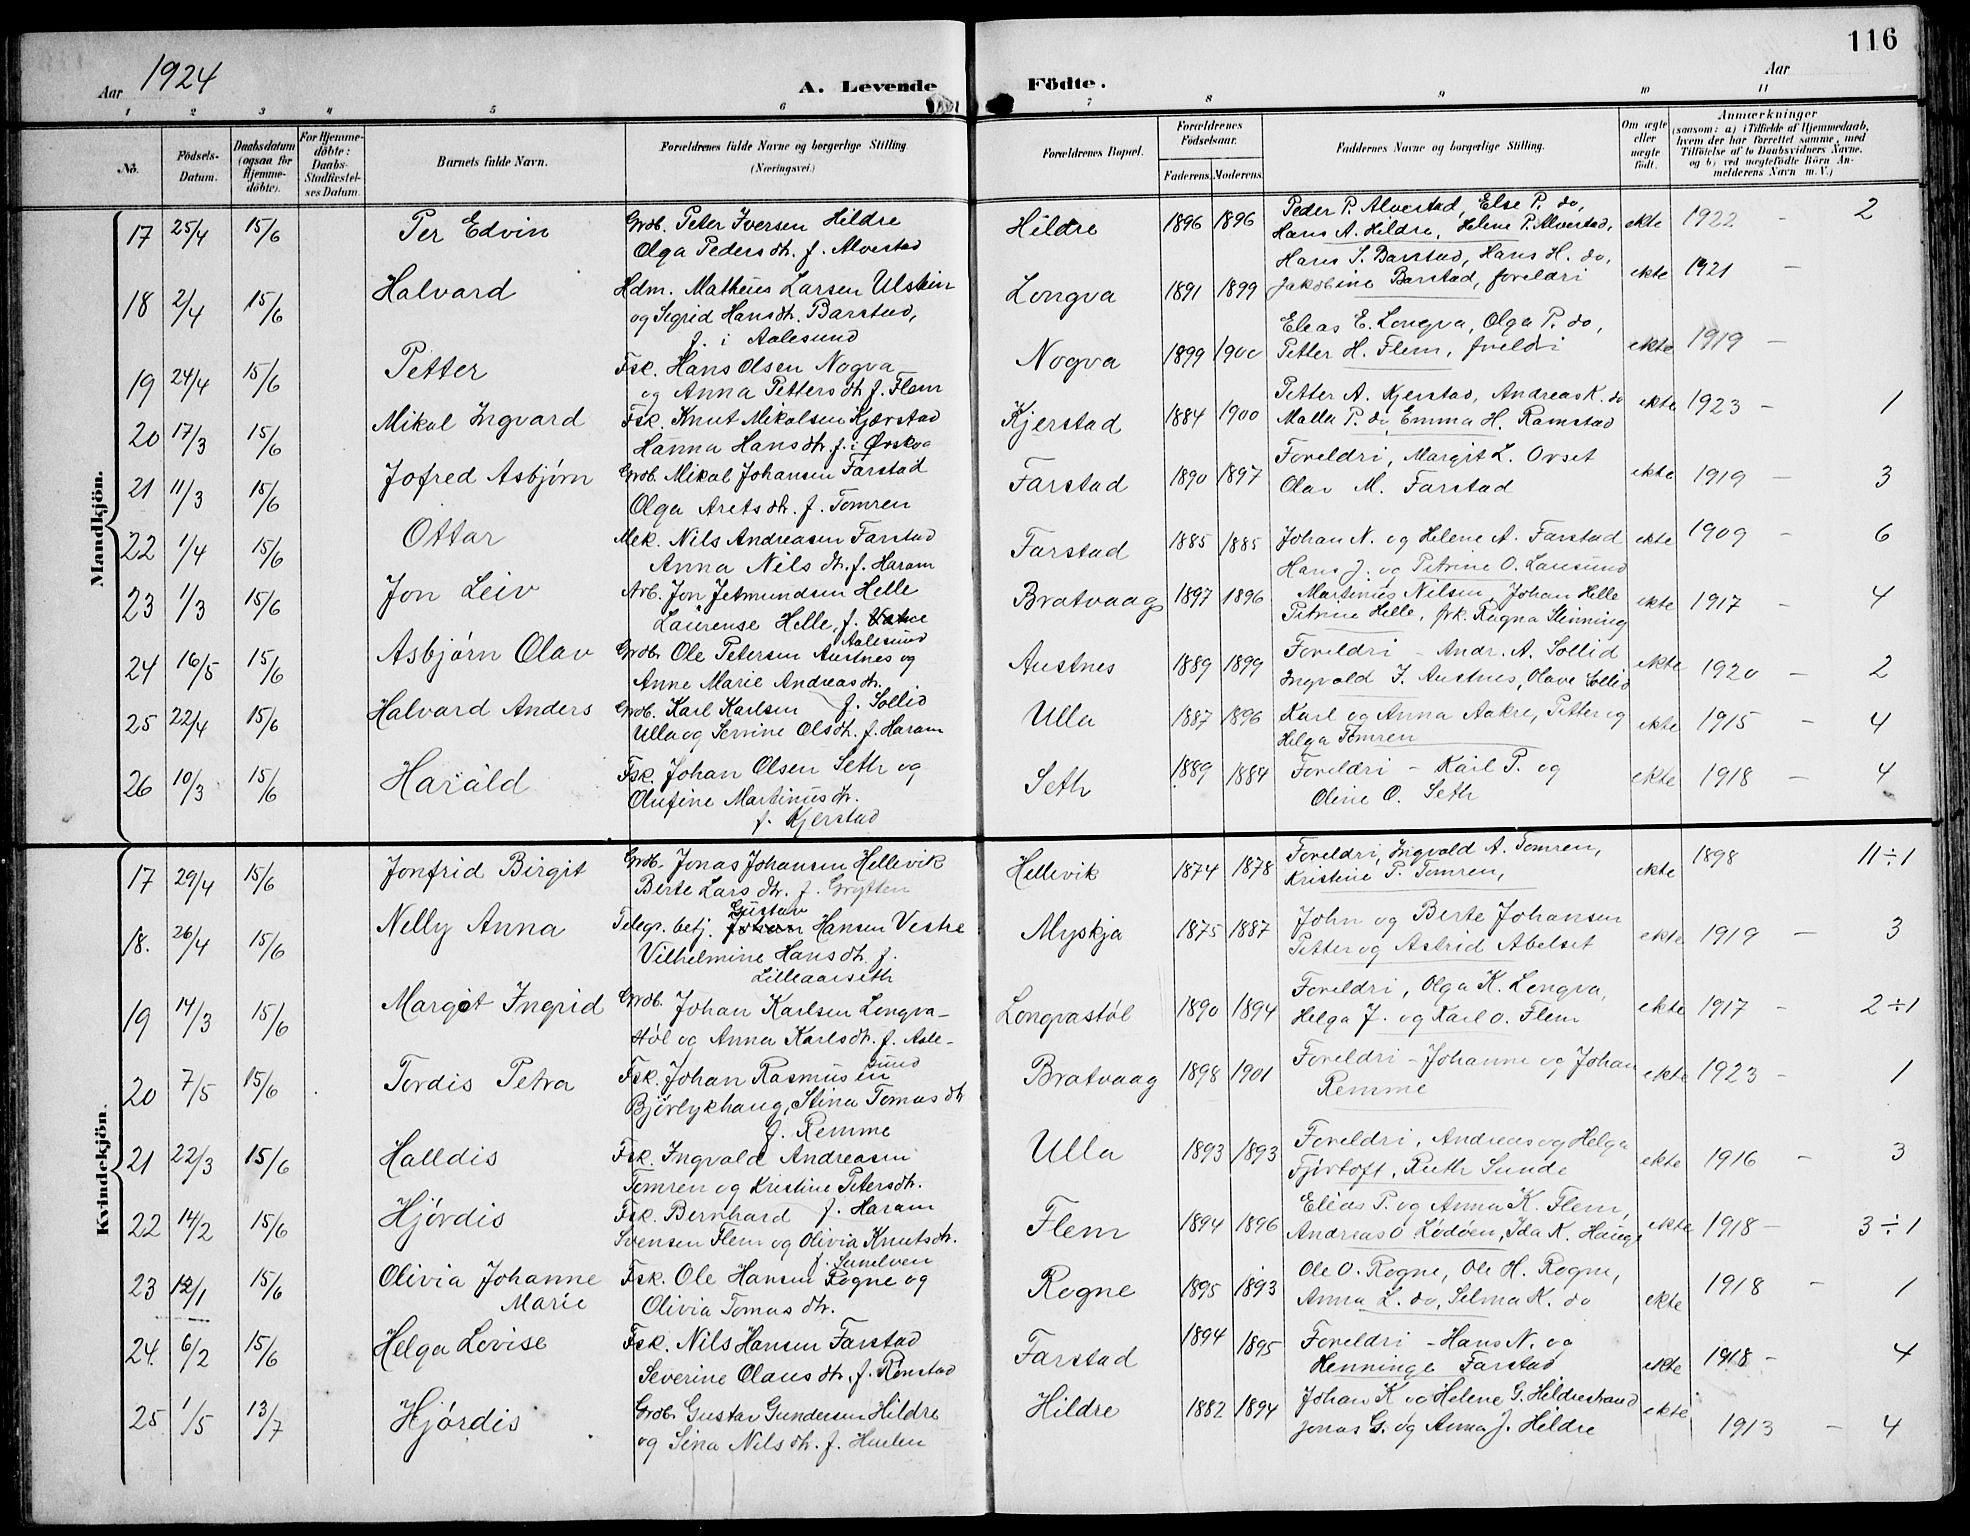 116
Aar 1924
A. Levende Födte.
Aar
1 2 3 4 5 6 7 8 9 10 11
No.
Födsels-Datum.
Daabsdatum (ogsaa for Hjemme-döbte).
For Hjemme-döbte: Daabs-Stadfæstel-ses Datum.
Barnets fulde Navn.
Forældrenes fulde Navne og borgerlige Stilling. (Næringsvei.)
Forældrenes Bopæl.
Forældrenes Födselsaar.
Faderens. Moderens.
Faddernes Navne og borgerlige Stilling.
Om ægte eller uægte födt.
Anmærkninger
(saasom: a) i Tilfælde af Hjemmedaab, hvem der har forrettet samme, med Tilföielse af to Daabsvidners Navne, og b) ved uægtefödte Börn An-melderens Navn m. V.)
Mandkjön.
17 25/4 15/6 Per Edvin Grdb. Peter Iversen Hildre Hildre 1896 1896 Peder P. Alvestad, Else P. do, ekte 1922 - 2
Olga Pedersdtr. f. Alvestad Hans A. Hildre, Helene P. Alvestad,
18 2/4 15/6 Halvard Hdm. Matheus Larsen Ulstein Longva 1891 1899 Hans S. Barstad, Hans H. do, ekte 1921 -
og Sigrid Hansdtr. Barstad, Jakobine Barstad, foreldri
f. i Aalesund
19 24/4 15/6 Petter Fsk. Hans Olsen Nogva Nogva 1899 1900 Elias E. Longva, Olga P. do, ekte 1919 -
og Anna Pettersdtr f. Flem Petter H. Flem, foreldri
20 17/3 15/6 Mikal Ingvard Fsk. Knut Mikalsen Kjærstad Kjerstad 1884 1900 Petter A. Kjerstad, Andreas K. do ekte 1923 - 1
Hanna Hansdtr. f. i Ørskog Malla P. do, Emma H. Ramstad
21 11/3 15/6 Jofred Asbjørn Grdb. Mikal Johansen Farstad Farstad 1890 1897 Foreldri, Margit L. Ovset ekte 1919 - 3
Olga Aretsdtr. f. Tomren Olav M. Farstad
22 1/4 15/6 Ottar Mek. Nils Andreasen Farstad Farstad 1885 1885 Johan N. og Helene A. Farstad ekte 1909 - 6
Anna Nilsdtr. f. Haram Hans J. og Petrine O. Lausund
23 1/3 15/6 Jon Leiv Arb. Jon Jetmundsen Helle Bratvaag 1897 1896 Martinus Nilsen, Johan Helle ekte 1917 - 4
Laurense Helle, f. Vatne Aalesund Petrine Helle, frk. Ragna Slinning
24 16/5 15/6 Asbjørn Olav Grdbr Ole Petersen Austnes og Austnes 1889 1899 Foreldri - Andr. A. Sollid ekte 1920 - 2
Anne Marie Andreasdtr. f. Sollid Ingvald J. Austnes, Olave Sollid
25 22/4 15/6 Halvard Anders Grdb. Karl Karlsen Ulla 1887 1896 Karl og Anna Aakre, Petter og ekte 1915 - 4
Ulla og Serine Olsdtr. f. Haram Helga Tomren
26 10/3 15/6 Harald Fsk. Johan Olsen Seth og Seth 1889 1884 Foreldri - Karl P. og ekte 1918 - 4
Olufine Martinusdtr. Oline O. Seth
f. Kjerstad
Kvindekjön.
17 29/4 15/6 Jonfrid Birgit Grdb. Jonas Johansen Hellevik Hellevik 1874 1878 Foreldri, Ingvald A. Tomren, ekte 1898 11÷1
Berte Larsdtr. f. Grytten Kristine P. Tomren,
18. 26/4 15/6 Nelly Anna Telegr. betj. Johan Gustav Hansen Vestre Myskja 1875 1887 John og Berte Johansen ekte 1919 - 3
Vilhelmine Hansdtr. f. Petter og Astrid Abelset
Lilleaarseth
19 14/3 15/6 Margot Ingrid Grdb. Johan Karlsen Longva- Longvastøl 1890 1894 Foreldri, Olga K. Longva, ekte 1917 - 2÷1
støl og Anna Karlsdtr. f. Aale- Helga J. og Karl O. Flem
sund
20 7/5 15/6 Tordis Petra Fsk. Johan Rasmusen Bratvaag 1898 1901 Foreldri - Johanne og Johan ekte 1923 - 1
Bjørlykhaug, Stina Tomasdtr Remme
f. Remme
21 22/3 15/6 Halldis Fsk. Ingvald Andreasen Ulla 1893 1893 Foreldri, Andreas og Helga ekte 1916 - 3
Tomren og Kristine Petersdtr. f. Haram Fjørtoft, Ruth Sunde
22 14/2 15/6 Hjørdis Fsk. Bernhard Flem 1894 1896 Elias P. og Anna K. Flem, ekte 1918 - 3÷1
Svensen Flem og Olivia Knutsdtr. f. Sunelven Andreas O Lødøen, Ida K. Hauge
23 12/1 15/6 Olivia Johanne Marie Fsk. Ole Hansen Rogne og Rogne 1895 1893 Ole O. Rogne, Ole H. Rogne, ekte 1918 - 1
Olivia Tomasdtr. Anna L. do, Selma K. do
24. 6/2 15/6 Helga Lovise Fsk. Nils Hansen Farstad Farstad 1894 1895 Foreldri - Hans N. og ekte 1918 - 4
Severine Olausdtr. f. Rønstad Henninge Farstad
25 1/5 13/7 Hjørdis Grdbr Gustav Gundersen Hildre Hildre 1882 1894 Johan K og Helene G. Hildrestrand ekte 1913 - 4
og Sina Nilsdtr. f. Huslen Jonas G. og Anna J. Heldre